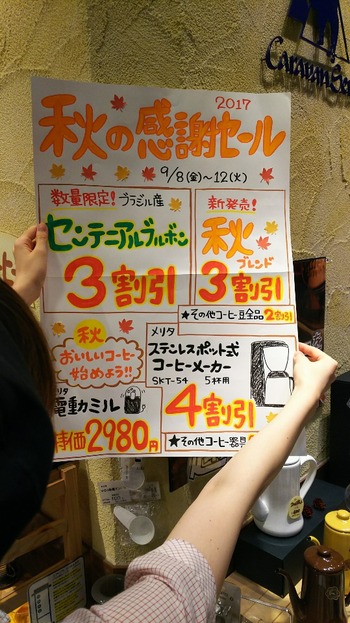 Caravan Se
2017
秋の感謝セール
9/8(金)～12(火)
数量限定! ブラジル産
センテニアルブルボン
3割引
新発売!
秋
ブレンド
3割引
★その他コーヒー豆全品2割引
秋
おいしいコーヒー
始めよう!!
リタ
電動ミル
準価2980円
メリタ
ステンレスポット式
コーヒーメーカー
SKT-54 5杯用
4割引
★その他コーヒー器具